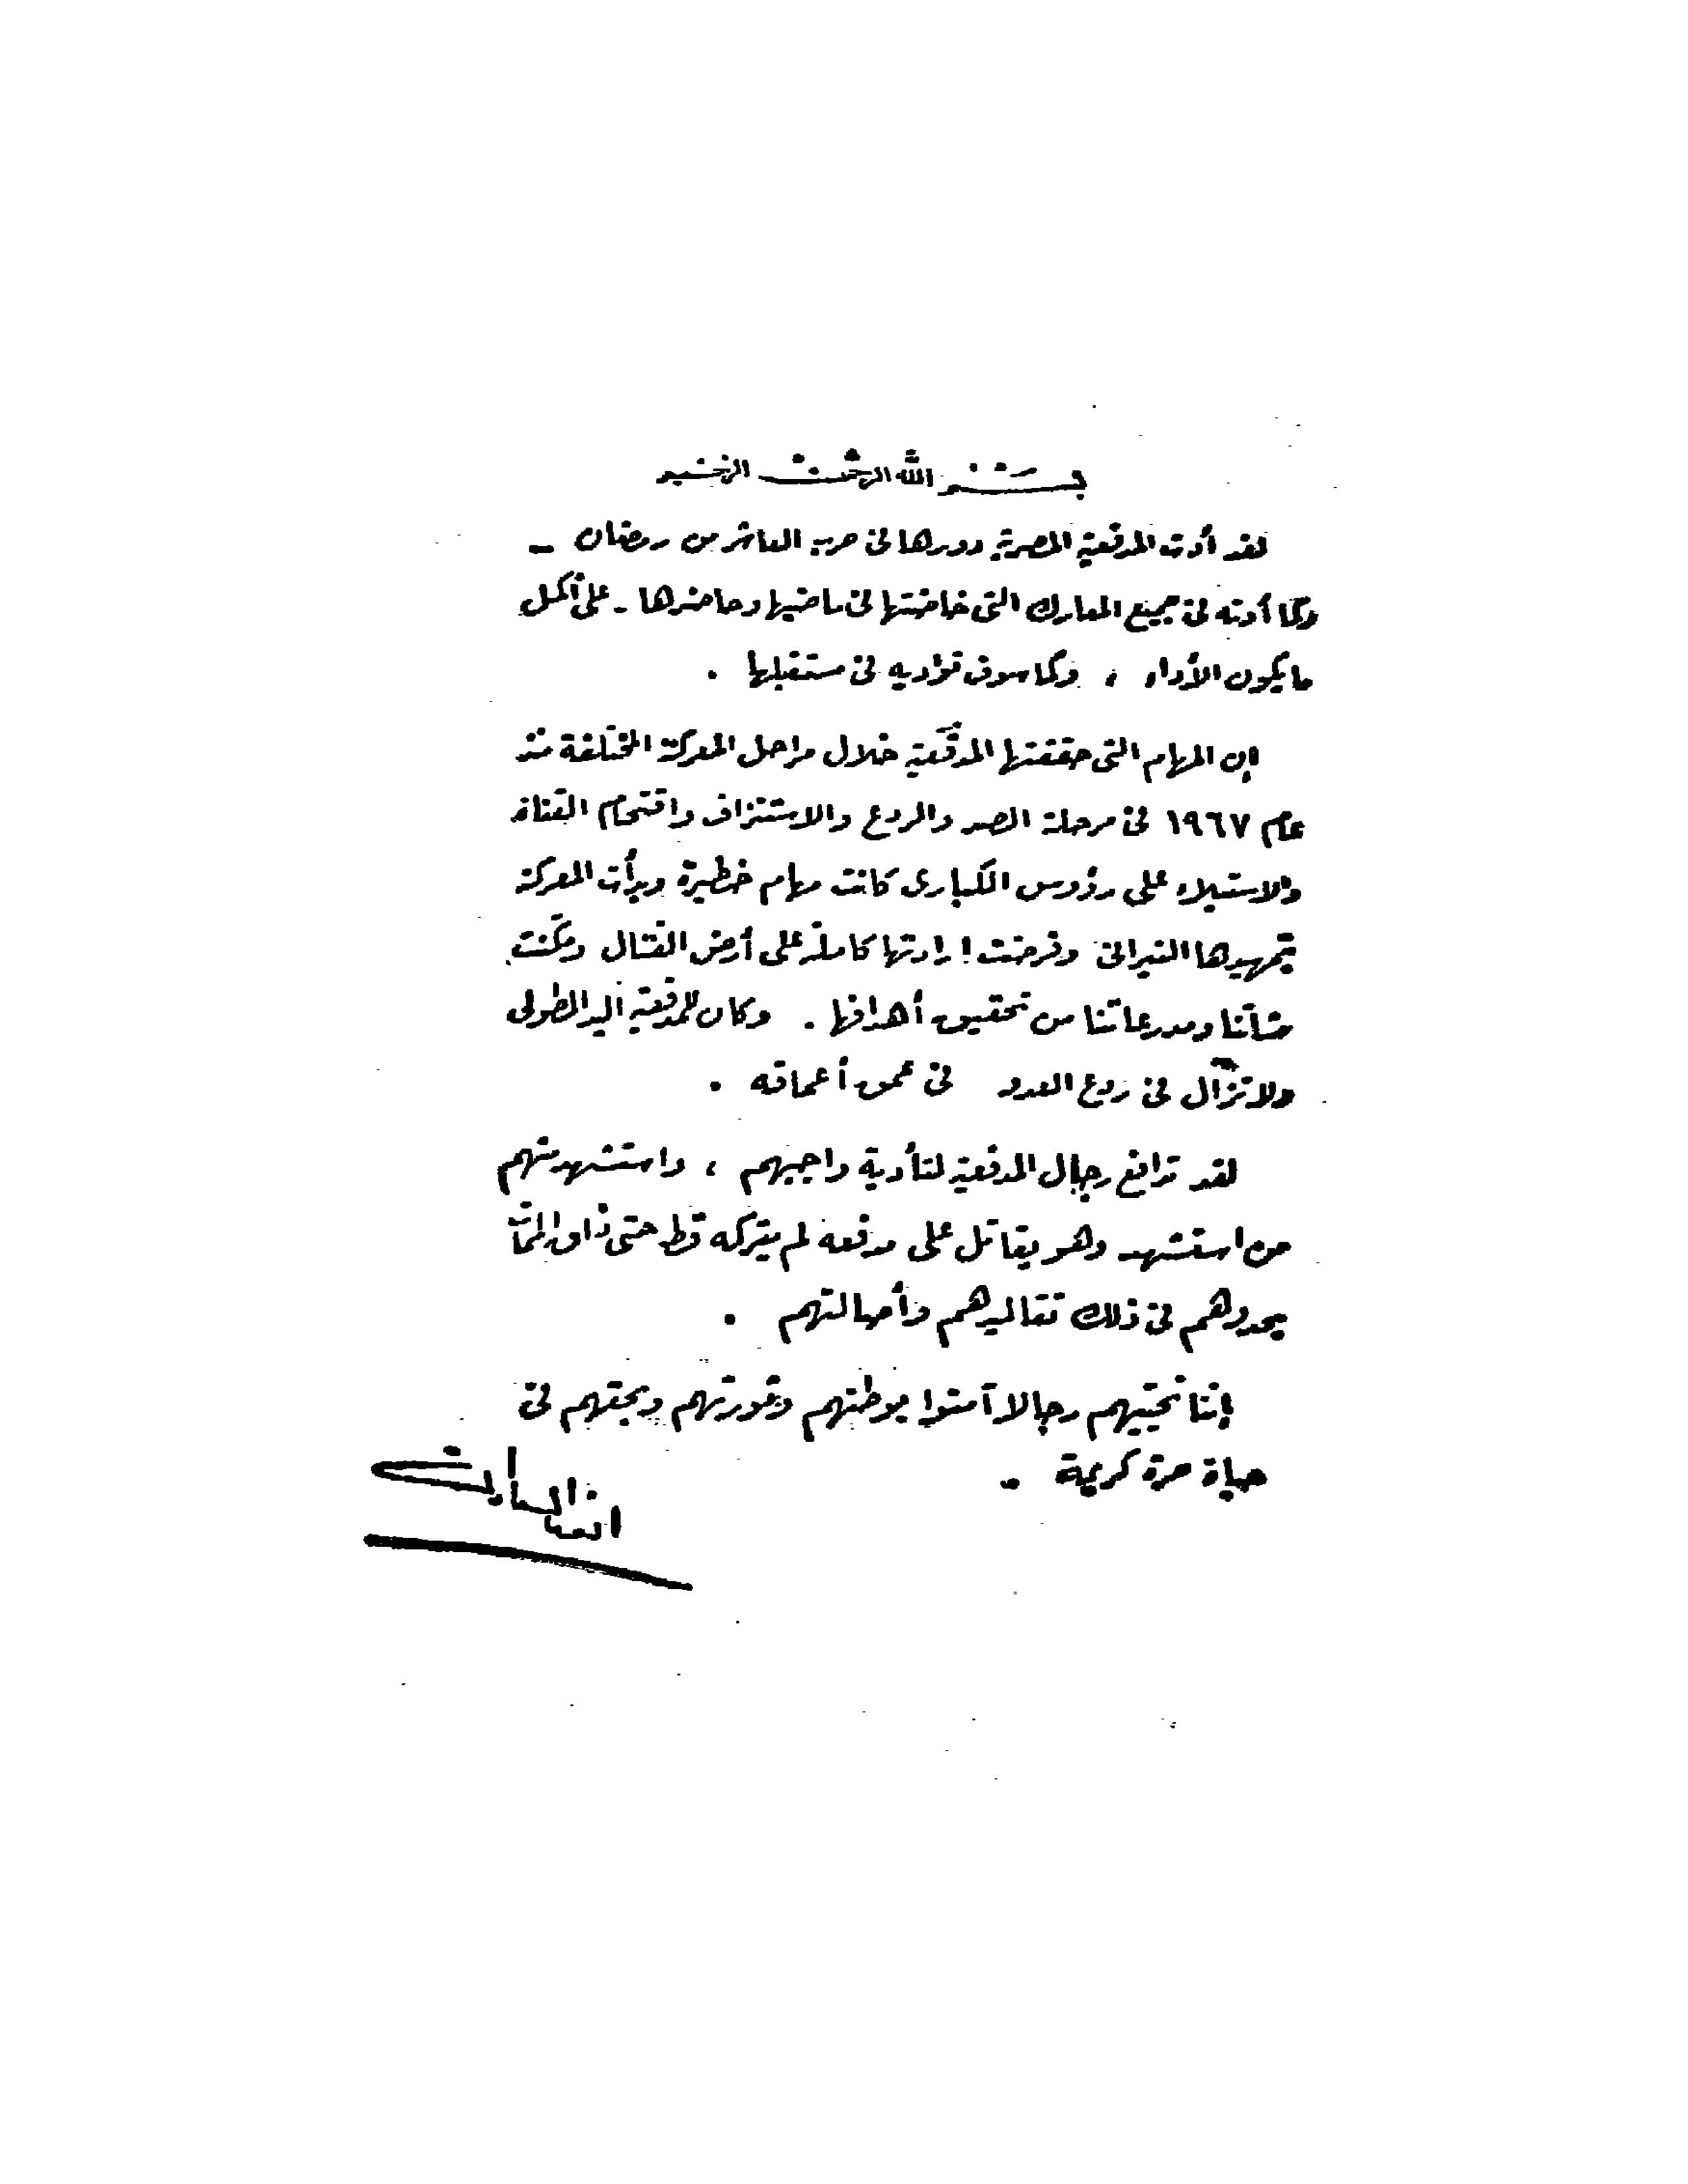 بسم الله الرحمن الرحيم
لقد أدت المدفعية المصرية دورها فى حرب العاشر من رمضان -
وكما أدته فى جميع المعارك التى خاضتها فى ماضيها وحاضرها - على أكمل
ما يكون الأداء ، وكما سوف تؤديه فى مستقبلها .
إن المهام التى حققتها المدفعية خلال مراحل المعركة المختلفة منذ
عام ١٩٦٧ فى مرحلة الصد والردع والاستنزاف واقتحام القناة
والاستيلاء على رؤوس الكبارى كانت مهام خطيرة وبدأت المعركة
بتمهيدها النيرانى وفرضت إرادتها كاملة على أرض القتال ومكنت
مشاتنا ومدرعاتنا من تحقيق أهدافها . وكان للمدفعية اليد الطولى
ولا تزال فى ردع العدو فى عمق أعماقه .
لقد تدافع رجال المدفعية لتأدية واجبهم ، واستشهد منهم
من استشهد وهو يقاتل على مدفعه لم يتركه قط حتى ذاق الممات
يحدوهم فى ذلك تقاليدهم وأصالتهم .
إننا نحييهم رجالا آمنوا بوطنهم وثورتهم وبحقهم فى
حياة حرة كريمة .
أنور السادات